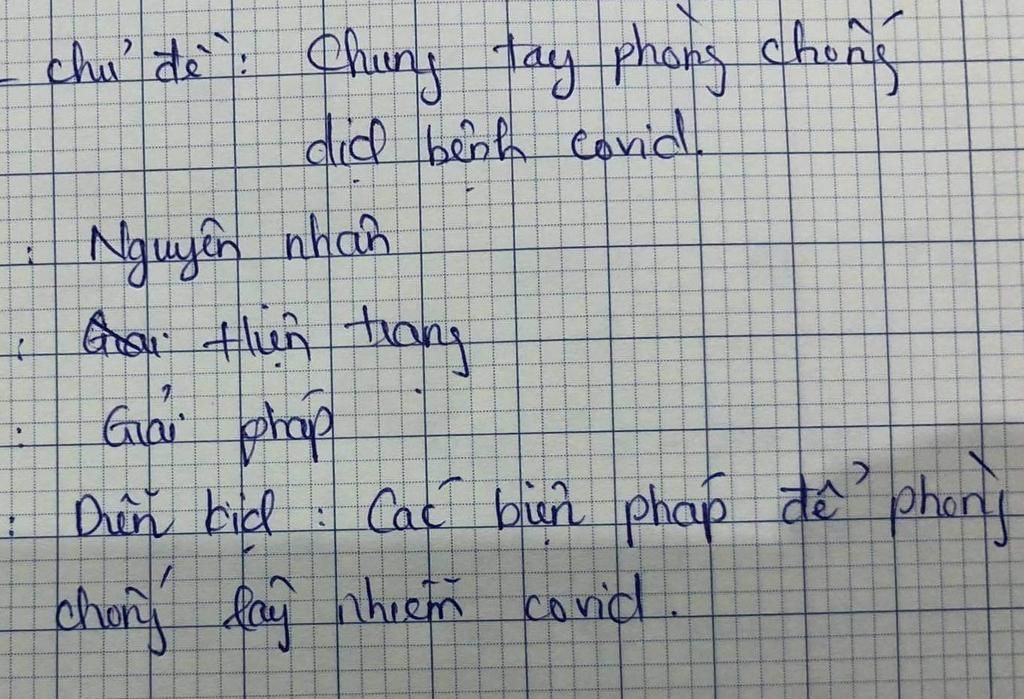 - Chủ đề: Chung tay phòng chống
dịch bệnh covid.
: Nguyên nhân
: thiện trạng
: Giải pháp
: Diễn kịch : Các biện pháp để phòng
chống lây nhiễm covid.